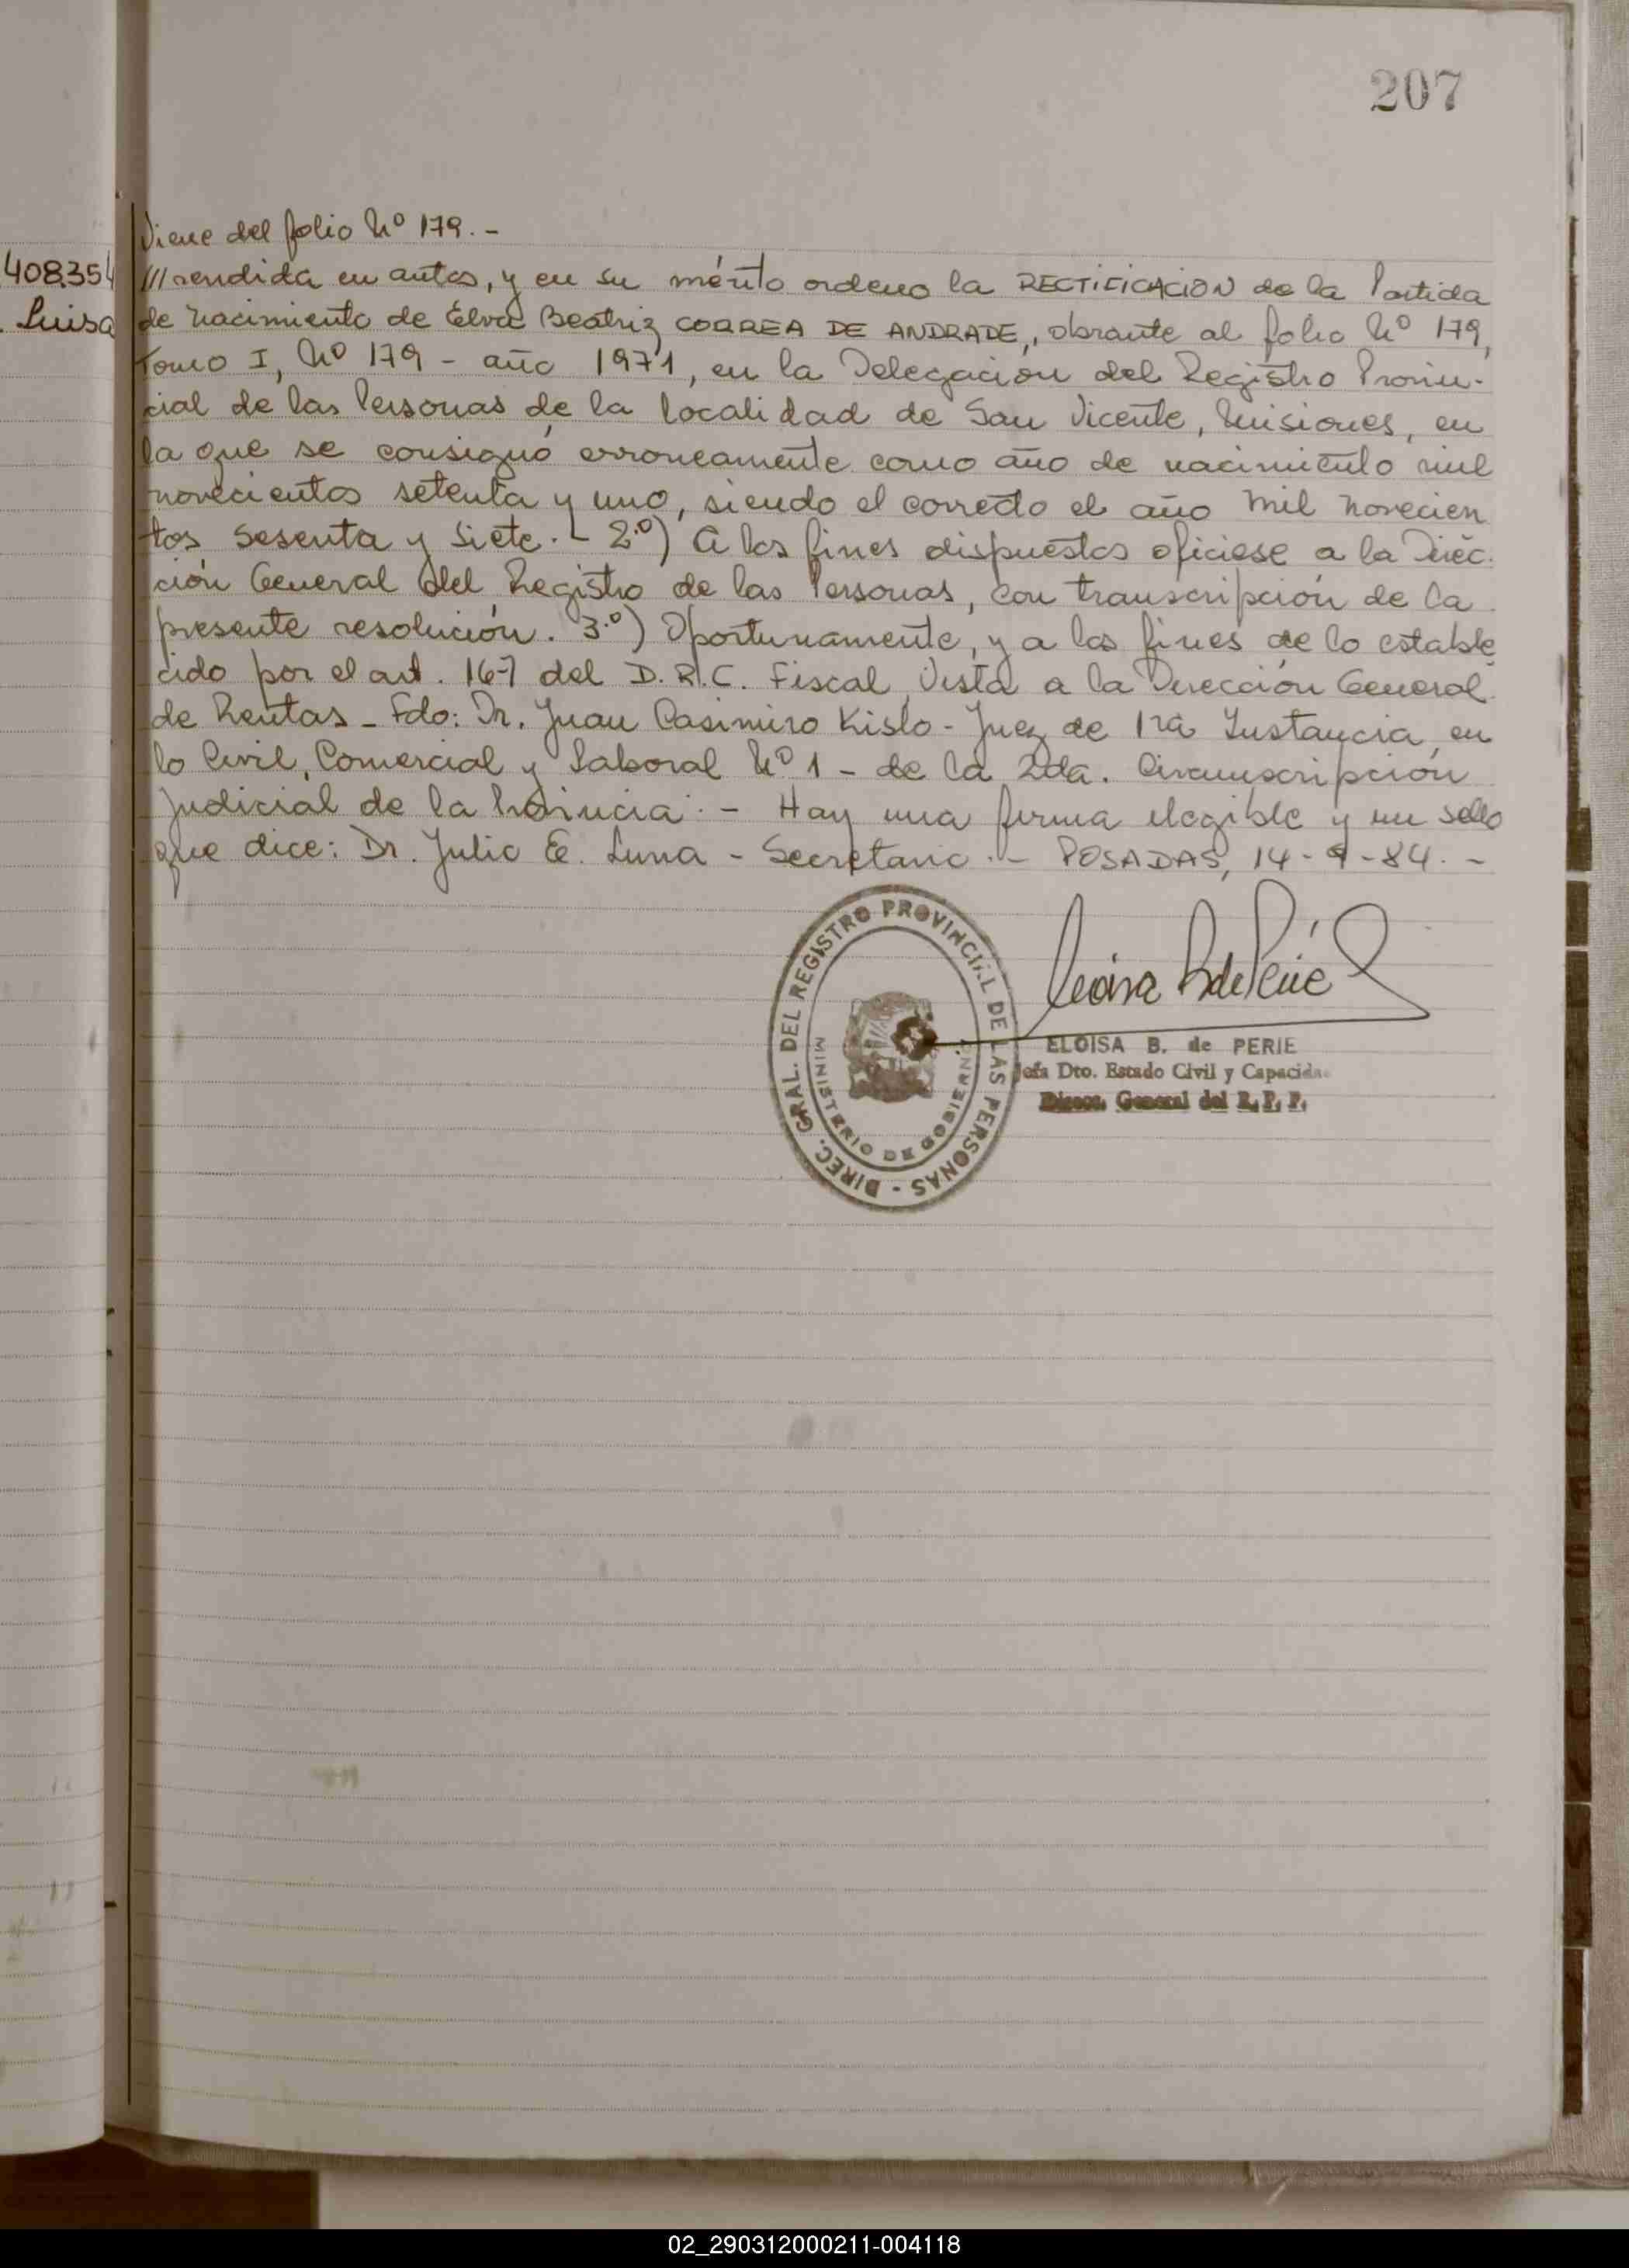 207
Viene del folio Nº 179.-
408.354
Luisa
/// rendida en autos, y en su mérito ordeno la RECTIFICACION de la Partida
de Nacimiento de Elva Beatriz CORREA DE ANDRADE,, obrante al folio Nº 179,
Tomo I, Nº 179 - año 1971, en la Delegación del Registro Provin-
cial de las Personas de la localidad de San Vicente, Misiones, en
la que se consignó erroneamente como año de nacimiento mil
novecientos setenta y uno, siendo el correcto el año mil novecien
tos sesenta y siete.- 2.º) A los fines dispuestos oficiese a la Direc.
ción General del Registro de las Personas, con transcripción de la
presente resolución. 3.º) Oportunamente, y a los fines de lo estable
cido por el art. 167 del D.R.C. Fiscal, Vista a la Dirección General
de Rentas - Fdo: Dr. Juan Casimiro Kislo - Juez de 1ra Instancia, en
lo Civil, Comercial y Laboral Nº 1 - de la 2da. Circunscripción
Judicial de la Provincia.- Hay una firma ilegible y un sello
que dice: Dr. Julio E. Luna - Secretario.- POSADAS, 14-9-84.-
DIREC. GRAL. DEL REGISTRO PROVINCIAL DE LAS PERSONAS -
MINISTERIO DE GOBIERNO
ELOISA B. de PERIE
Jefa Dto. Estado Civil y Capacidad
Direcc. General del R. P. P.
02_290312000211-004118